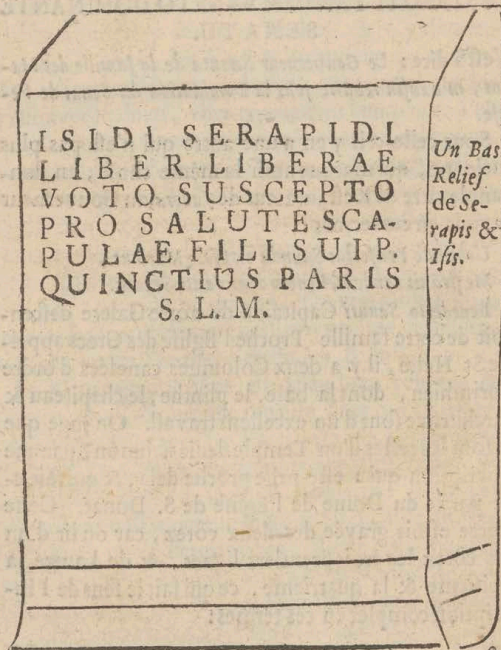 ISIDI SERAPIDI
LIBER LIBERAE
VOTO SUSCEPTO
PRO SALUTE SCA-
PULAE FILI SUI P.
QUINCTIUS PARIS
S. L. M.
Un Bas
Relief
de Se-
rapis &
Isis.